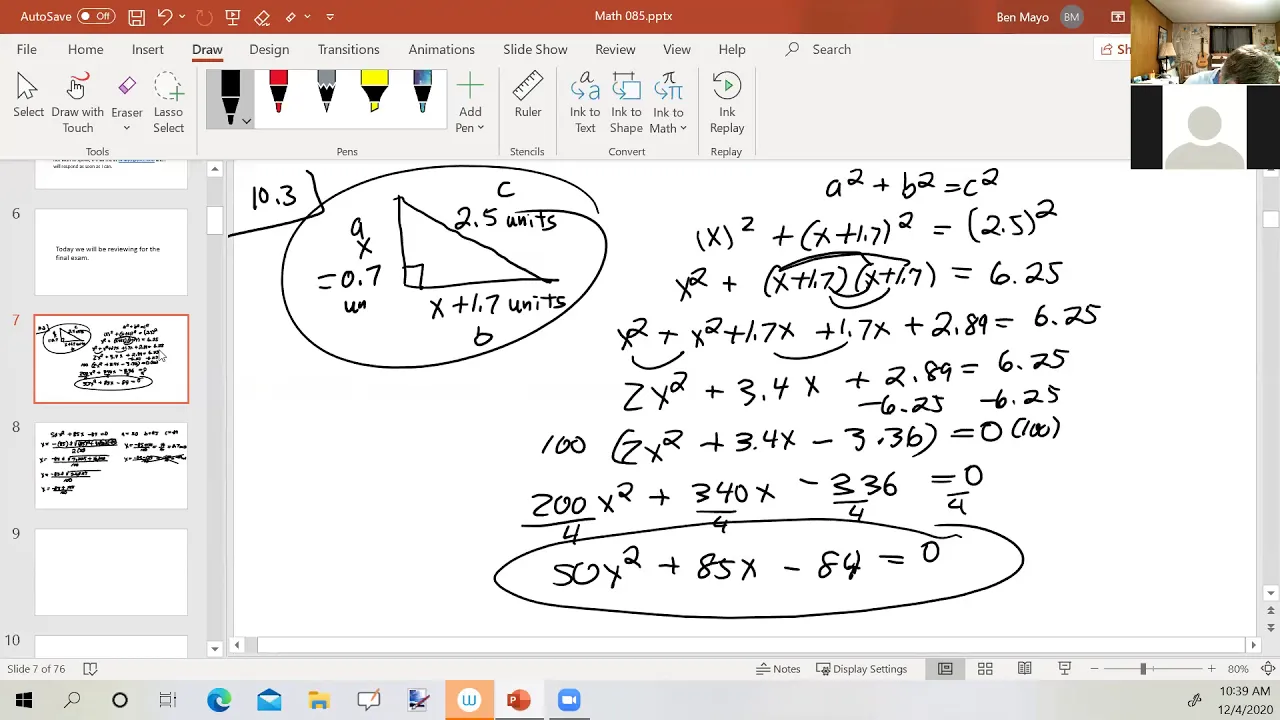 AutoSave Off
Math 085.pptx
Ben Mayo BM
File Home Insert Draw Design Transitions Animations Slide Show Review View Help Search Sh
Select Draw with Touch Eraser Lasso Select
Add Pen Ruler Ink to Text Ink to Shape Ink to Math Ink Replay
Tools Pens Stencils Convert Replay
will respond as soon as I can.
6
Today we will be reviewing for the
final exam.
7
8
9
10
10.3
c
2.5 units
a
x
= 0.7
un
x + 1.7 units
b
a² + b² = c²
(x)² + (x+1.7)² = (2.5)²
x² + (x+1.7)(x+1.7) = 6.25
x² + x² + 1.7x + 1.7x + 2.89 = 6.25
2x² + 3.4x + 2.89 = 6.25
-6.25 -6.25
100 (2x² + 3.4x - 3.36) = 0 (100)
200x² + 340x - 336 = 0
4 4 4 4
50x² + 85x - 84 = 0
Slide 7 of 76 Notes Display Settings 80%
W P
10:39 AM
12/4/2020